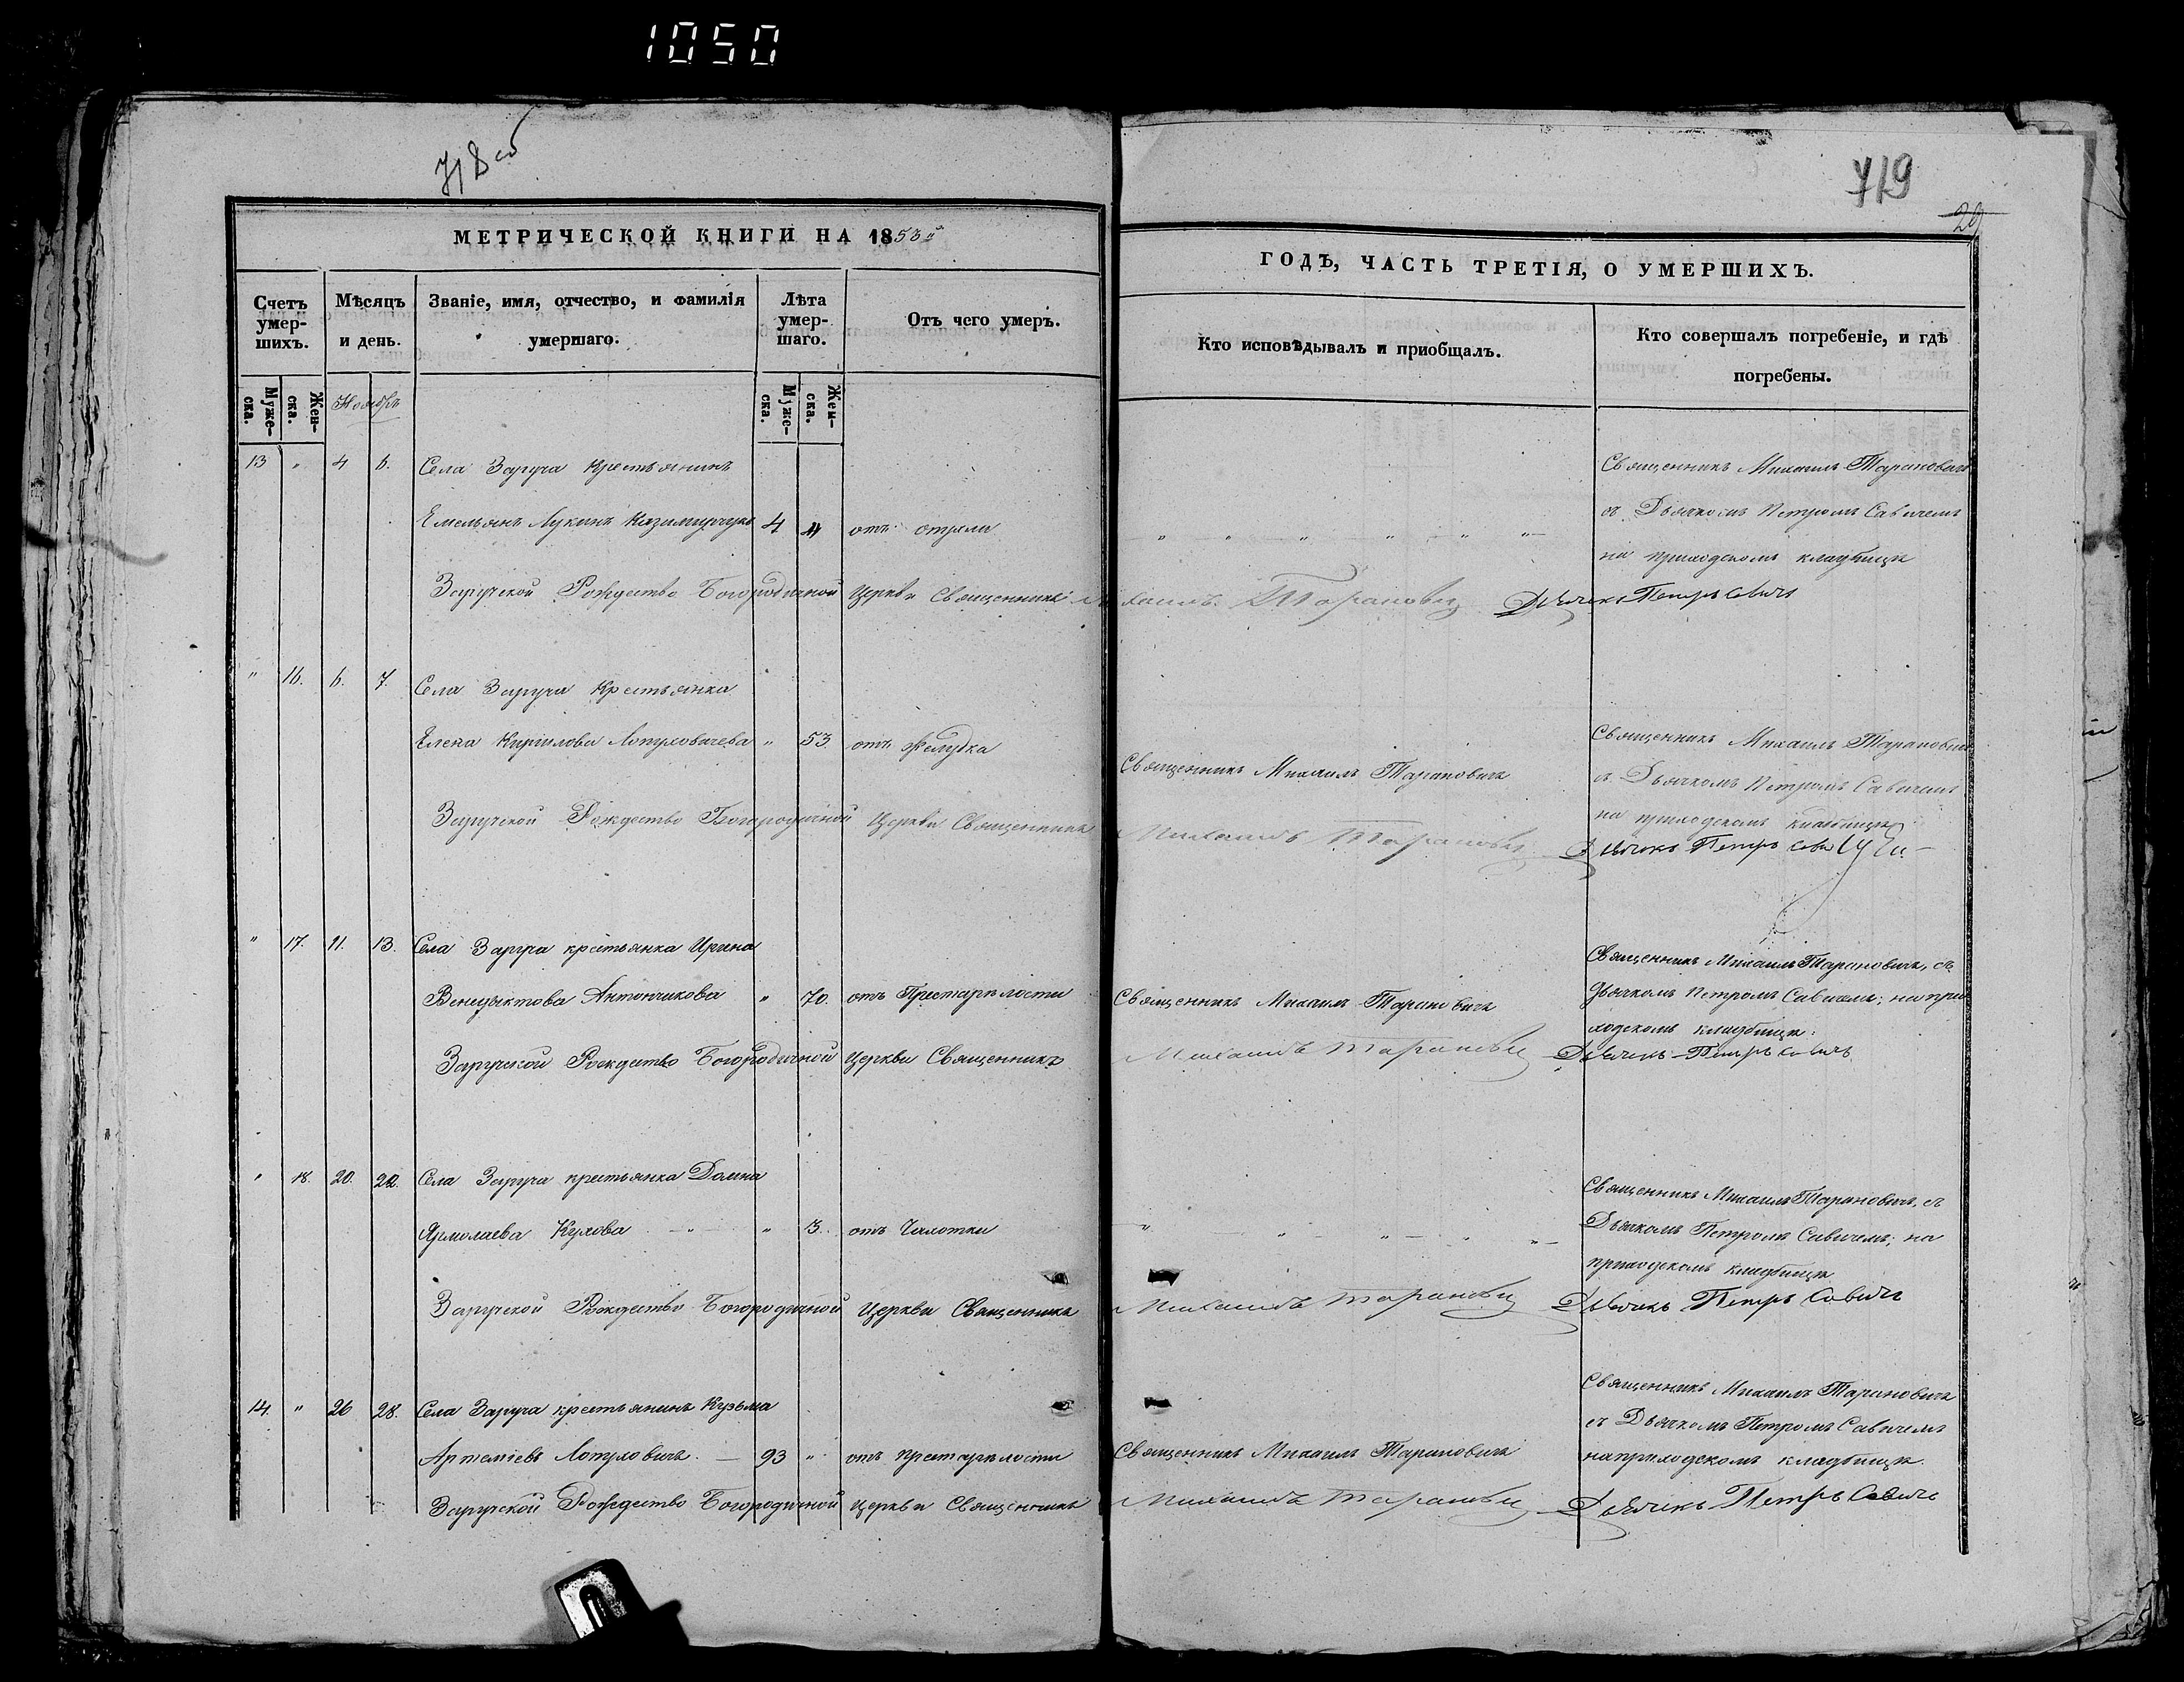 1050
718 об
719
29
МЕТРИЧЕСКОЙ КНИГИ НА 1853й
ГОДЪ, ЧАСТЬ ТРЕТІЯ, О УМЕРШИХЪ.
Счетъ умер- шихъ.
Мѣсяцъ и день.
Званіе, имя, отчество, и фамилія умершаго.
Лѣта умер- шаго.
Отъ чего умеръ.
Кто исповѣдывалъ и приобщалъ.
Кто совершалъ погребеніе, и гдѣ погребены.
Муже- ска.
Жен- ска.
Ноябрь
Муже- ска.
Жен- ска.
13 " 4 6. Села Заруча Крестьянинъ
Священникъ Михаилъ Тарановичъ
Емельянъ Лукинъ 4 " отъ
съ Дьячкомъ Петромъ Савичемъ
на приходскомъ кладбищѣ
Заручской Рождество Богородичной Церкви Священникъ Михаилъ Таранович Дьячекъ Петръ Савичъ
" 16. 6. 7. Села Заруча Крестьянка
Елена Кирилова Лопуховичева " 53. отъ Желудка
Священникъ Михаилъ Тарановичъ
Священникъ Михаилъ Тарановичъ
съ Дьячкомъ Петромъ Савичемъ
на приходскомъ кладбищѣ
Заручской Рождество Богородичной Церкви Священникъ Михаилъ Таранович Дьячекъ Петръ
" 17. 11. 13. Села Заруча крестьянка Ирина
Священникъ Михаилъ Тарановичъ, съ
Венедыктова Антончикова " 70. отъ Престарѣлости
Священникъ Михаилъ Тарановичъ
Дьячкомъ Петромъ Савичемъ; на при
ходскомъ кладбищѣ.
Заручской Рождество Богородичной Церкви Священникъ Михаилъ Таранович Дьячекъ Петръ Савичъ
" 18. 20. 22. Села Заруча крестьянка Домна
Священникъ Михаилъ Тарановичъ, съ
Ярмолаева Кухова " 3. отъ Чахотки
Дьячкомъ Петромъ Савичемъ; на
приходскомъ кладбищѣ
Заручской Рождество Богородичной Церкви Священникъ Михаилъ Таранович Дьячекъ Петръ Савичъ
14. " 26 28. Села Заруча крестьянинъ Кузьма
Священникъ Михаилъ Тарановичъ
съ Дьячкомъ Петромъ Савичемъ
Артеміевъ Лопуховичъ. — 93 " отъ престарѣлости
Священникъ Михаилъ Тарановичъ
на приходскомъ кладбищѣ.
Заручской Рождество Богородичной Церкви Священникъ Михаилъ Таранович Дьячекъ Петръ Савичъ